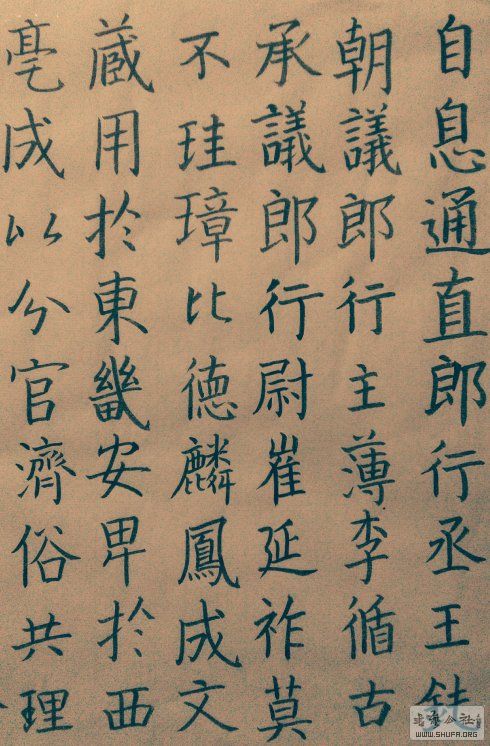 自息通直郎行丞王
朝議郎行主薄李循古
承議郎行尉崔延祚莫
不珪璋比德麟鳳成文
蔵用於東畿安卑於西
亳成以分官濟俗共理
WWW.SHUFA.ORG